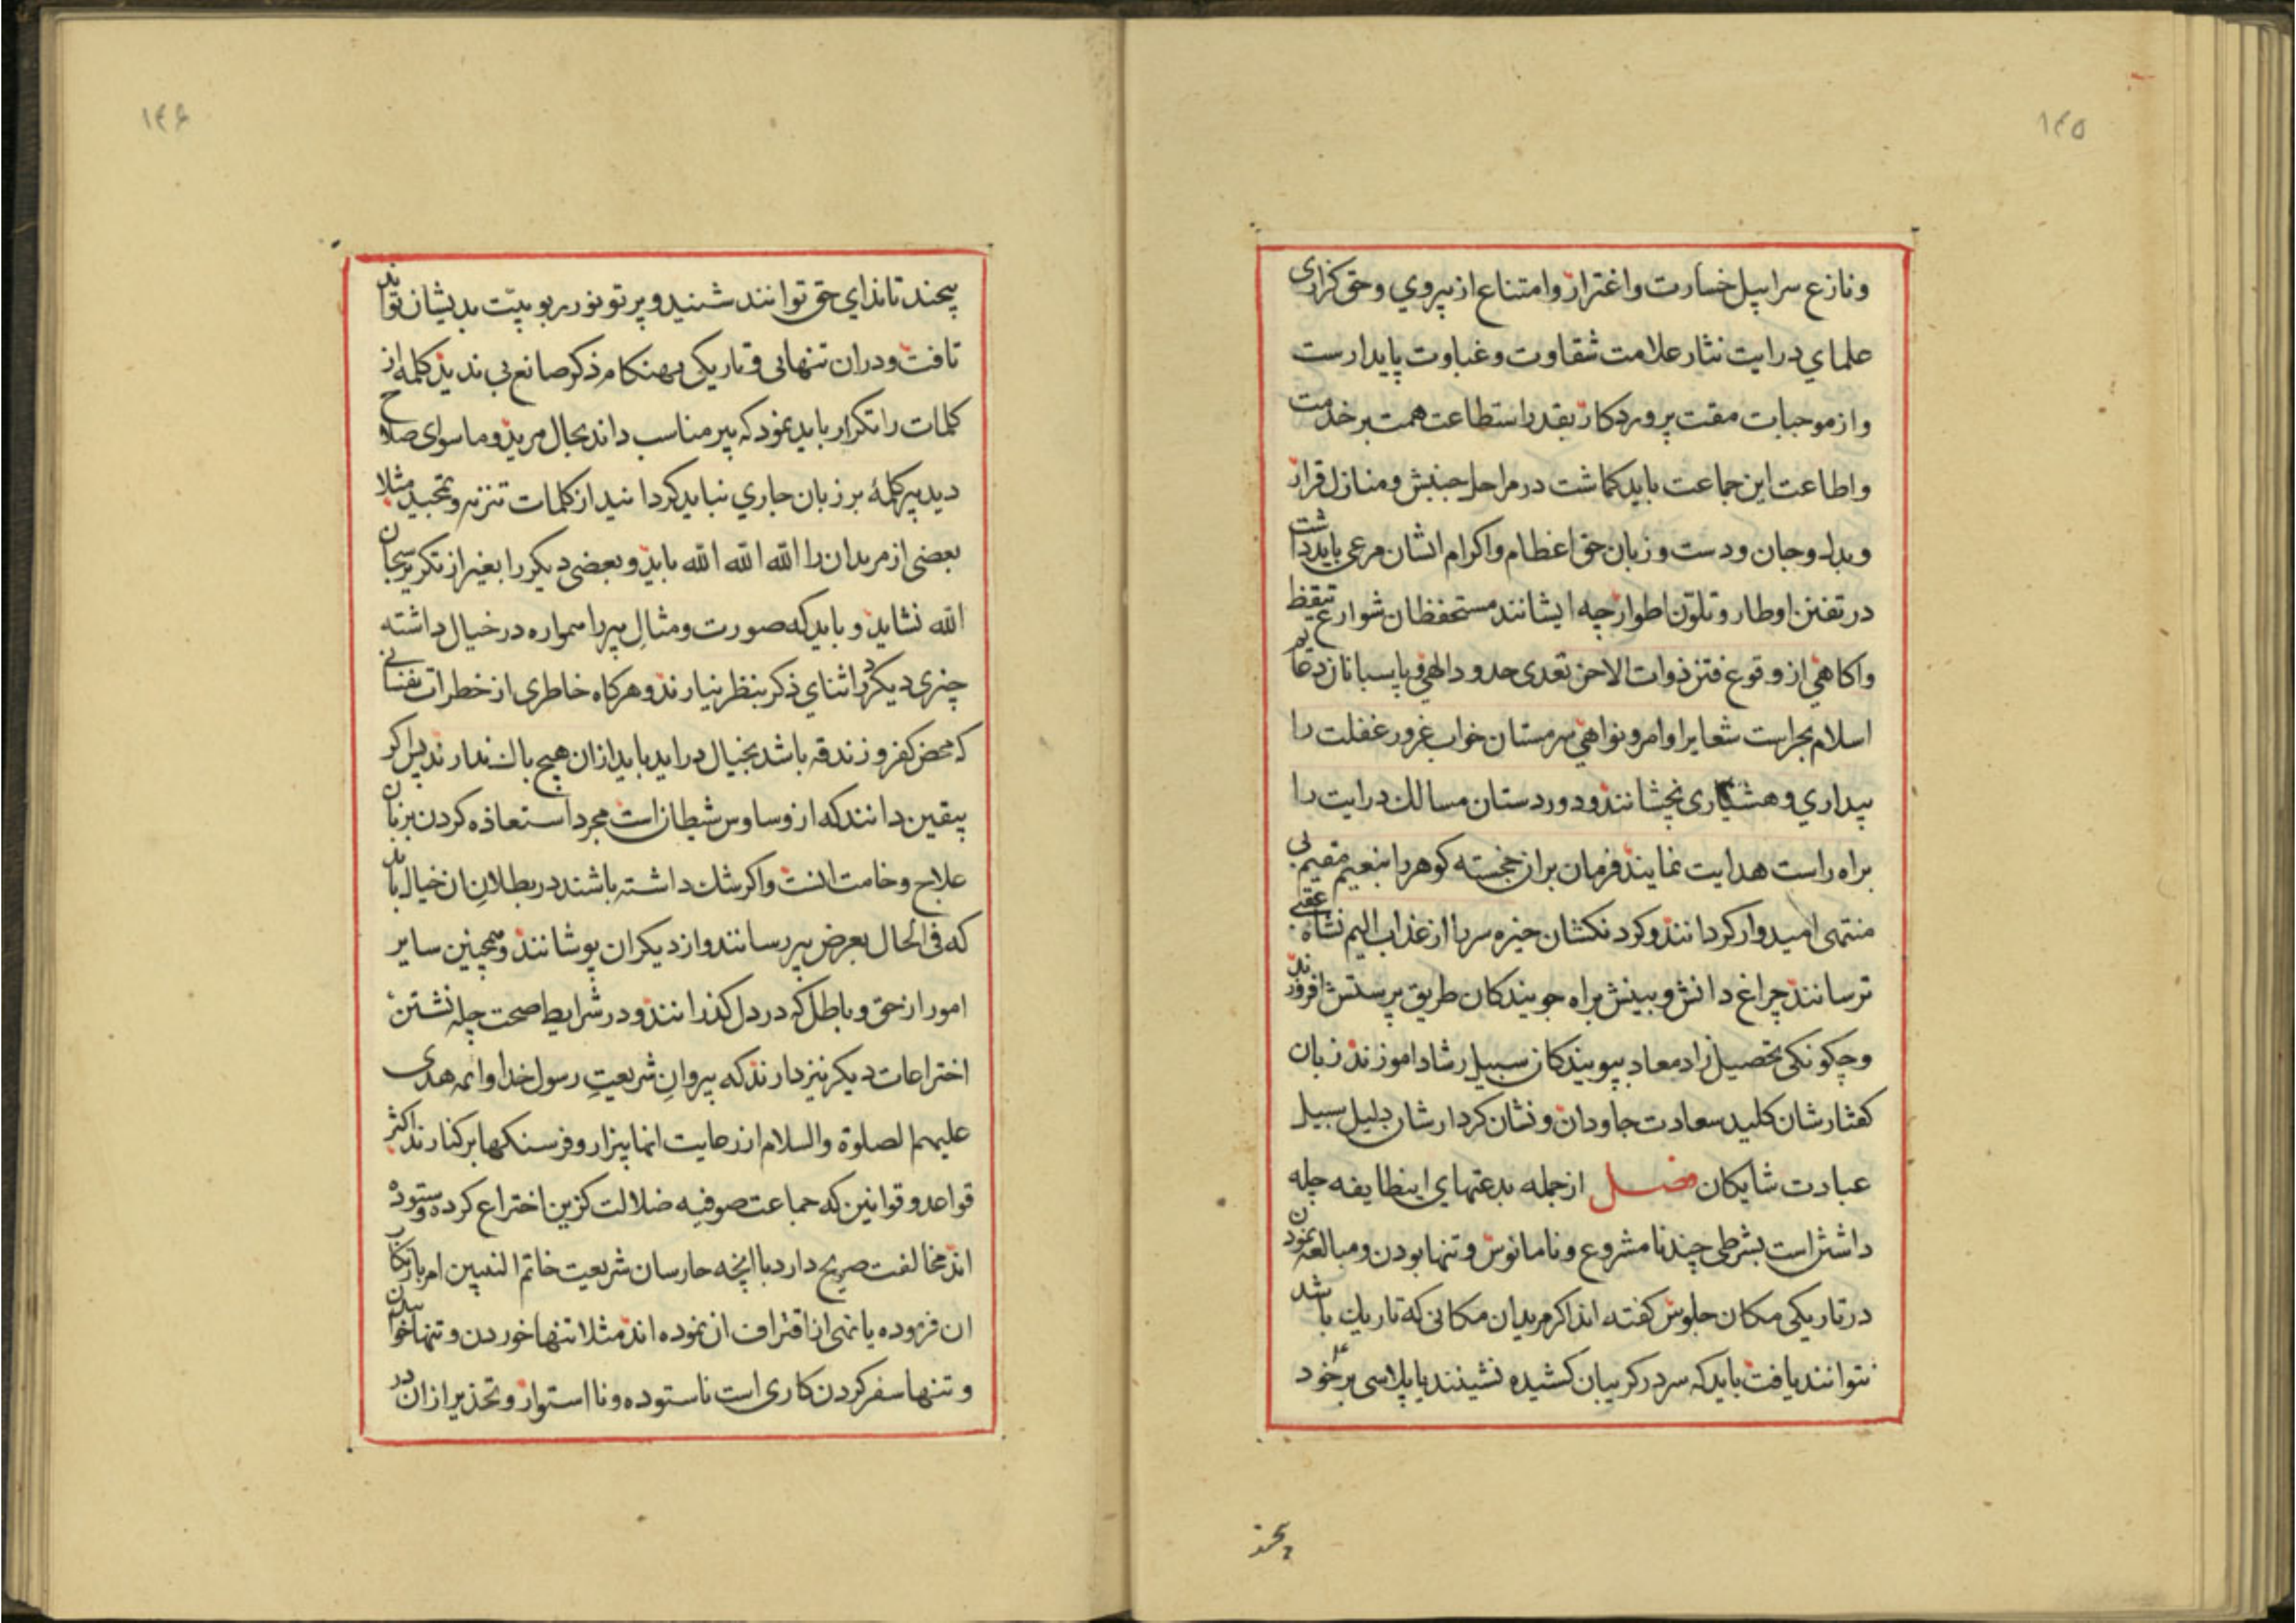 ۱۴۵
ونازع سرابیل خسارت واغترار وامتناع از پیروی وحق کزاری
علمای درایت نثار علامت شقاوت وغباوت پایدارست
واز موجبات مقت پروردکار بقدر استطاعت همت بر خدمت
واطاعت این جماعت باید کماشت در مراحل جنبش ومنازل قرار
وبدل وجان ودست وزبان حق اعظام واکرام انشان مرعی باید داشت
در تفنن اوطار وتلون اطوار چه ایشانند مستحفظان شوارع تیقظ
واکاهی از وقوع فتن ذوات الاحن تعدی حدود الهی وپاسبانان دعایم
اسلام بحراست شعایر اوامر ونواهی سرمستان خواب غرور غفلت را
بیداری وهشیاری بخشانند ودوردستان مسالك درایت را
براه راست هدایت نمایند فرمان بران خجسته کوهر را بنعیم مقیم بی
منتهی امیدوار کردانند وکردنکشان خیره سر را از عذاب الیم نشاه عقبی
ترسانند چراغ دانش وبینش براه جویندکان طریق پرستش افروزند
وچکونکی تحصیل زاد معاد بپویندکان سبیل رشاد اموزند زبان
کفتارشان کلید سعادت جاودان ونشان کردارشان دلیل سبیل
عبادت شایکان فصل از جمله بدعتهای اینطایفه چله
داشتن است بشرطی چند نامشروع ونامانوس وتنها بودن ومبالغه نمودن
در تاریکی مکان جلوس کفته اند اکر مریدان مکانی که تاریك باشد
نتوانند یافت باید که سر در کریبان کشیده نشینند یا پلاسی بر خود
پیچند
۱۴۶
پیچند تا ندای حق توانند شنید وپرتو نور ربوبیت بدیشان تواند
تافت ودران تنهایی وتاریکی بهنکام ذکر صانع بی ندید کلمه از
کلمات را تکرار باید نمود که پیر مناسب داند بحال مرید وماسوای صلاح
دید پیر کلمهٔ بر زبان جاری نباید کردانید از کلمات تنزیه وتمجید مثلا
بعضی از مریدان را الله الله الله باید وبعضی دیکر را بغیر از تکریر سبحان
الله نشاید وباید که صورت ومثال پیر را همواره در خیال داشته
چیزی دیکر در اثنای ذکر بنظر نیارند وهرکاه خاطری از خطرات نفسانی
که محض کفر وزندقه باشد بخیال دراید باید ازان هیچ باك ندارند پس اکر
بیقین دانند که از وساوس شیطان است مجرد استعاذه کردن بزبان
علاج وخامت انست واکر شك داشته باشند در بطلان ان خیال باید
که فی الحال بعرض پیر رسانند واز دیکران پوشانند وهمچنین سایر
امور از حق وباطل که در دل کذرانند ودر شرایط صحت چله نشتن
اختراعات دیکر نیز دارند که پیروان شریعت رسول خدا وائمه هدی
علیهم الصلوة والسلام از رعایت انها بیزار وفرسنکها برکنارند اکثر
قواعد وقوانین که جماعت صوفیه ضلالت کزین اختراع کرده وستوده
اند مخالفت صریح دارد با انچه حارسان شریعت خاتم النبیین امر بارتکاب
ان فرموده یا نهی از اقتراف ان نموده اند مثلا تنها خوردن وتنها خوابیدن
وتنها سفر کردن کاری است ناستوده ونااستوار وتحذیر ازان در